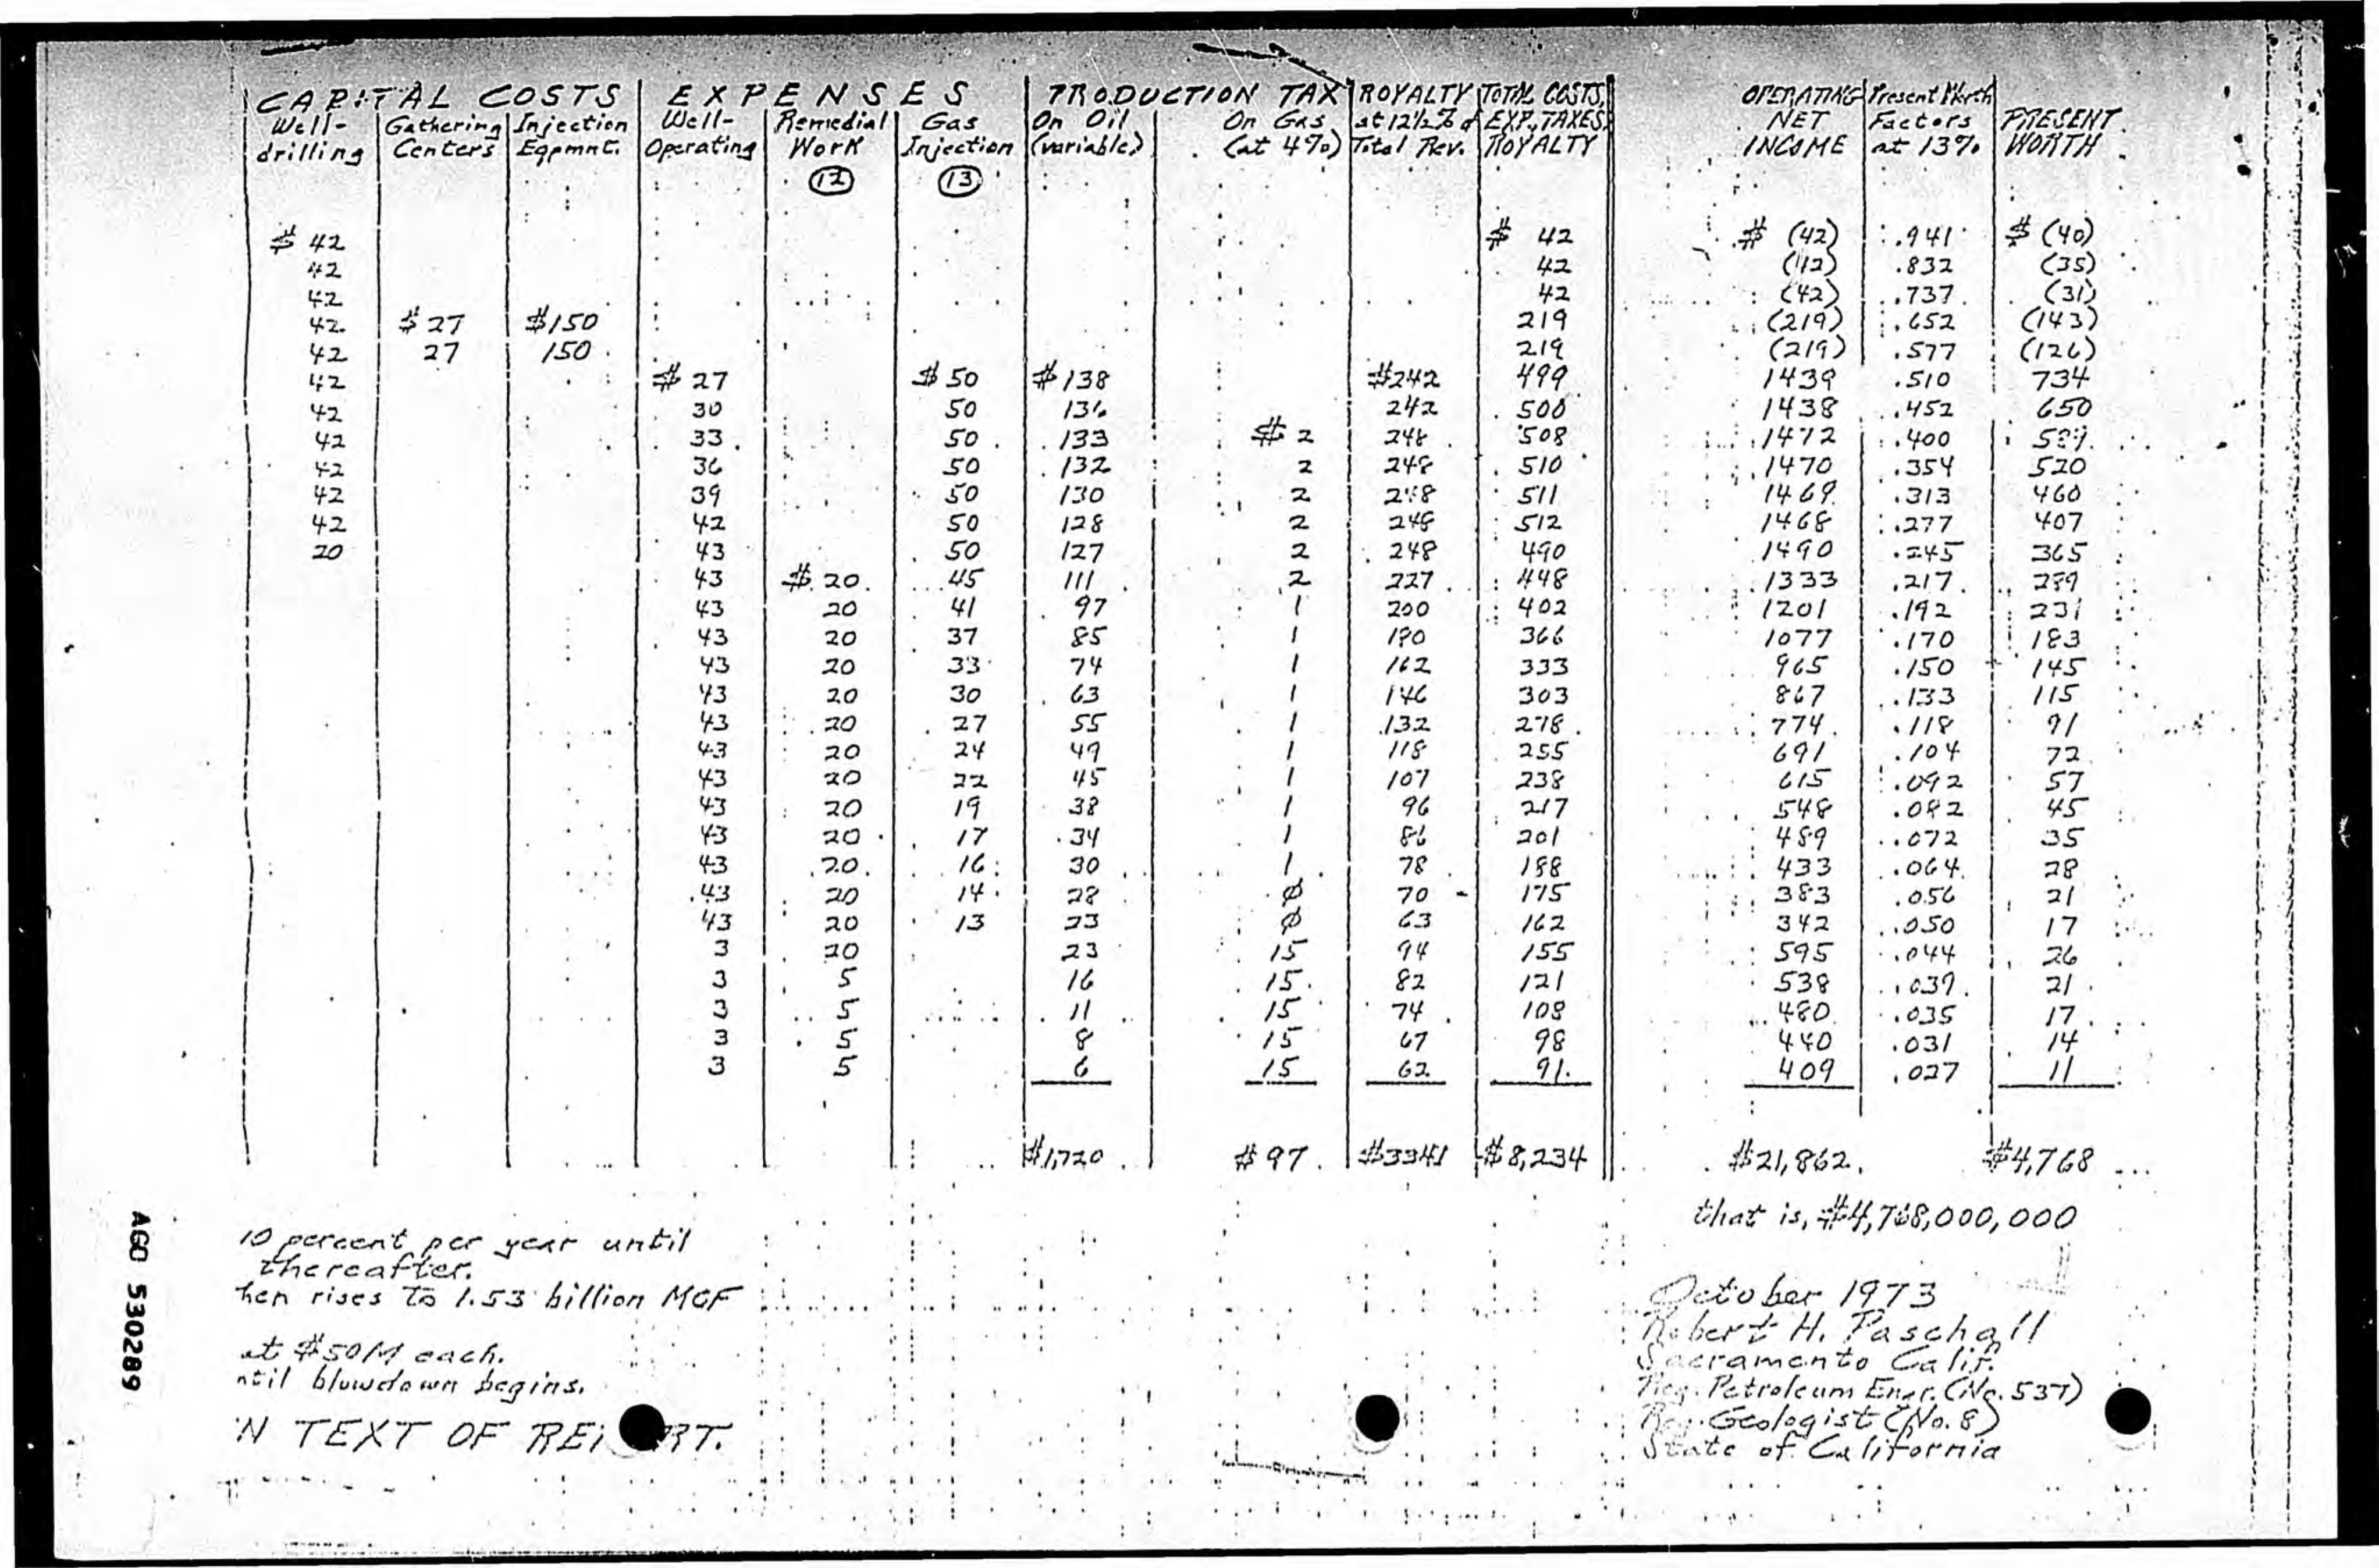 CAPITAL COSTS EXPENSES PRODUCTION TAX ROYALTY TOTAL COSTS, OPERATING Present Worth
Well- Gathering Injection Well- Remedial Gas On Oil On Gas at 12½% of EXP., TAXES, NET Factors PRESENT
drilling Centers Eqpmnt. Operating Work Injection (variable) (at 4%) Total Rev. ROYALTY INCOME at 13% WORTH
12 13
$ 42 $ 42 $ (42) .941 $ (40)
42 42 (42) .832 (35)
42 42 (42) .737 (31)
42 $ 27 $150 219 (219) .652 (143)
42 27 150 219 (219) .577 (126)
42 $ 27 $ 50 $138 $242 499 1439 .510 734
42 30 50 136 242 500 1438 .452 650
42 33 50 133 $ 2 248 508 1472 .400 589
42 36 50 132 2 248 510 1470 .354 520
42 39 50 130 2 248 511 1469 .313 460
42 42 50 128 2 248 512 1468 .277 407
20 43 50 127 2 248 490 1490 .245 365
43 $ 20 45 111 2 227 448 1333 .217 289
43 20 41 97 1 200 402 1201 .192 231
43 20 37 85 1 180 366 1077 .170 183
43 20 33 74 1 162 333 965 .150 145
43 20 30 63 1 146 303 867 .133 115
43 20 27 55 1 132 278 774 .118 91
43 20 24 49 1 118 255 691 .104 72
43 20 22 45 1 107 238 615 .092 57
43 20 19 38 1 96 217 548 .082 45
43 20 17 34 1 86 201 489 .072 35
43 20 16 30 1 78 188 433 .064 28
43 20 14 28 ϕ 70 175 383 .056 21
43 20 13 23 ϕ 63 162 342 .050 17
3 20 23 15 94 155 595 .044 26
3 5 16 15 82 121 538 .039 21
3 5 11 15 74 108 480 .035 17
3 5 8 15 67 98 440 .031 14
3 5 6 15 62 91 409 .027 11
$1,720 $97 $3341 $8,234 $21,862 $4,768
that is, $4,768,000,000
10 percent per year until
thereafter.
hen rises to 1.53 billion MCF
at $50M each.
ntil blowdown begins.
N TEXT OF RE RT.
October 1973
Robert H. Paschall
Sacramento Calif.
Reg. Petroleum Engr. (No. 537)
Reg. Geologist (No. 8)
State of California
AGO 530289